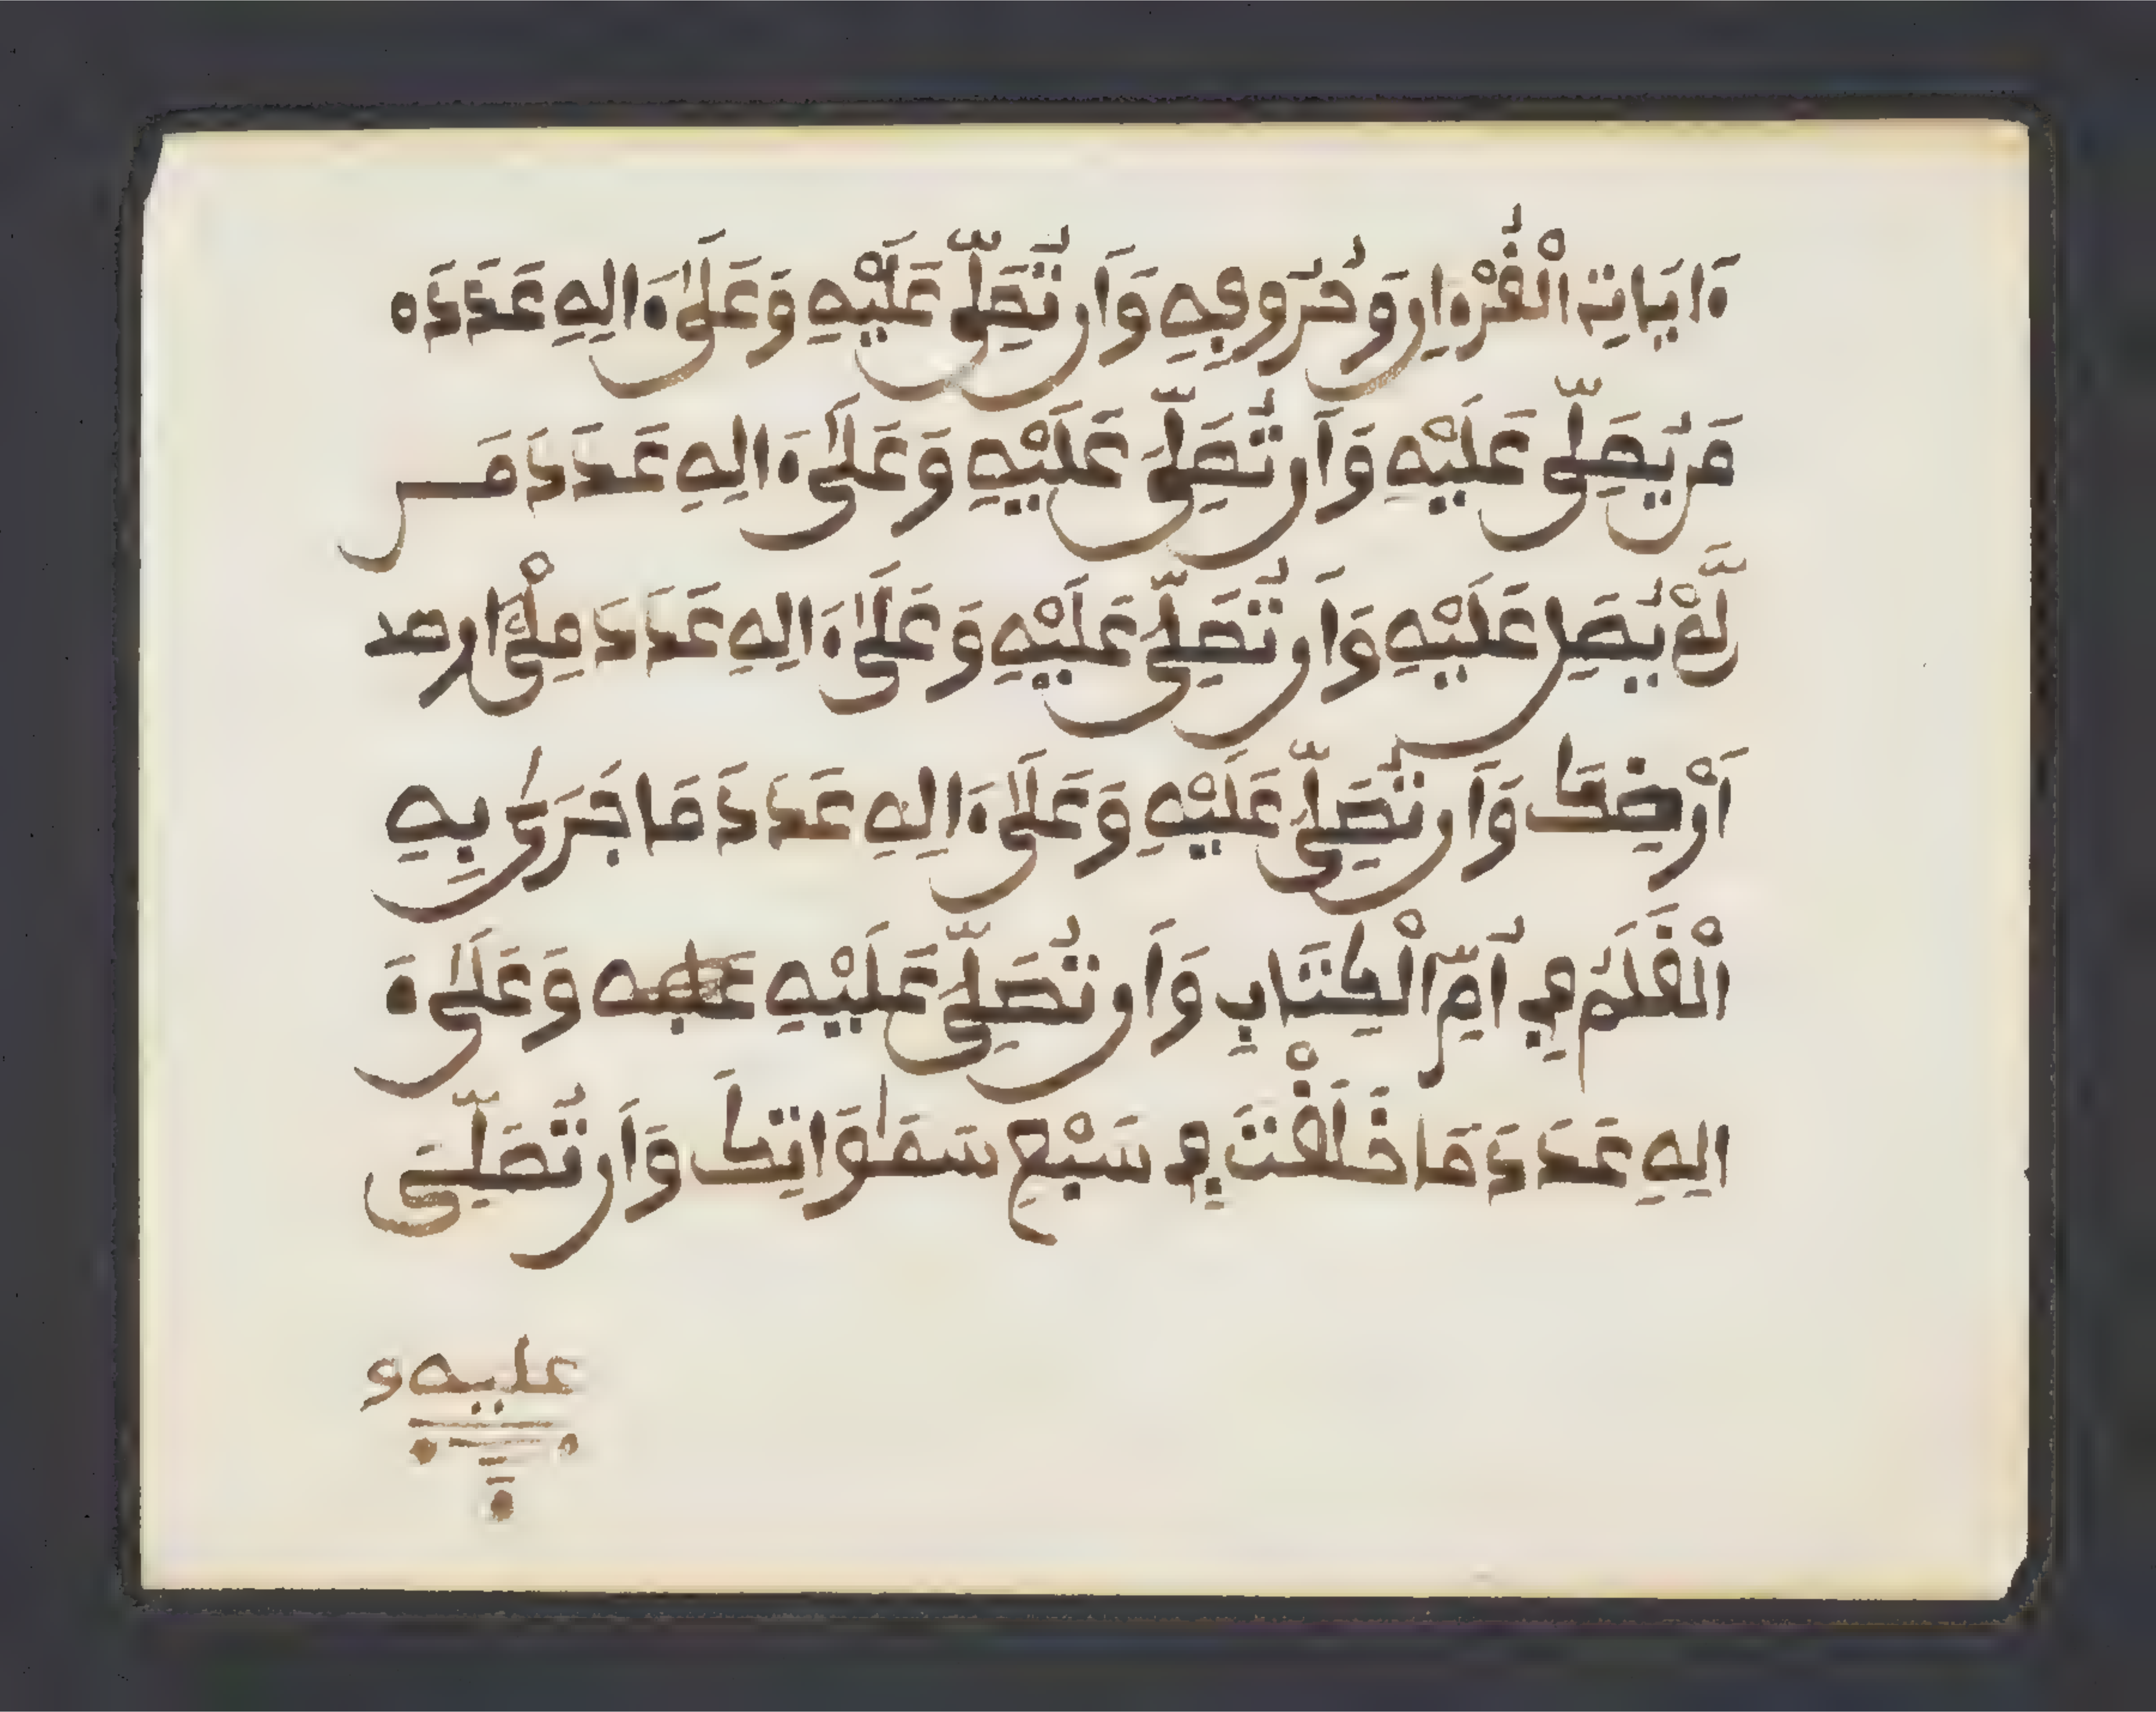 ءَايَاتِ الْقُرْءَانِ وَحُرُوفِهِ وَأَن تُصَلِّيَ عَلَيْهِ وَعَلَىٰ ءَالِهِ عَدَدَ ه
مَن يُصَلِّي عَلَيْهِ وَأَن تُصَلِّيَ عَلَيْهِ وَعَلَىٰ ءَالِهِ عَدَدَ مَن
لَّمْ يُصَلِّ عَلَيْهِ وَأَن تُصَلِّيَ عَلَيْهِ وَعَلَىٰ ءَالِهِ عَدَدَ مِلْءِ ارصد
أَرْضِكَ وَأَن تُصَلِّيَ عَلَيْهِ وَعَلَىٰ ءَالِهِ عَدَدَ مَا جَرَىٰ بِهِ
الْقَلَمُ فِي أُمِّ الْكِتَابِ وَأَن تُصَلِّيَ عَلَيْهِ وَعَلَىٰ ءَ
الِهِ عَدَدَ مَا خَلَقْتَ فِي سَبْعِ سَمَٰوَاتِكَ وَأَن تُصَلِّيَ
عليه و